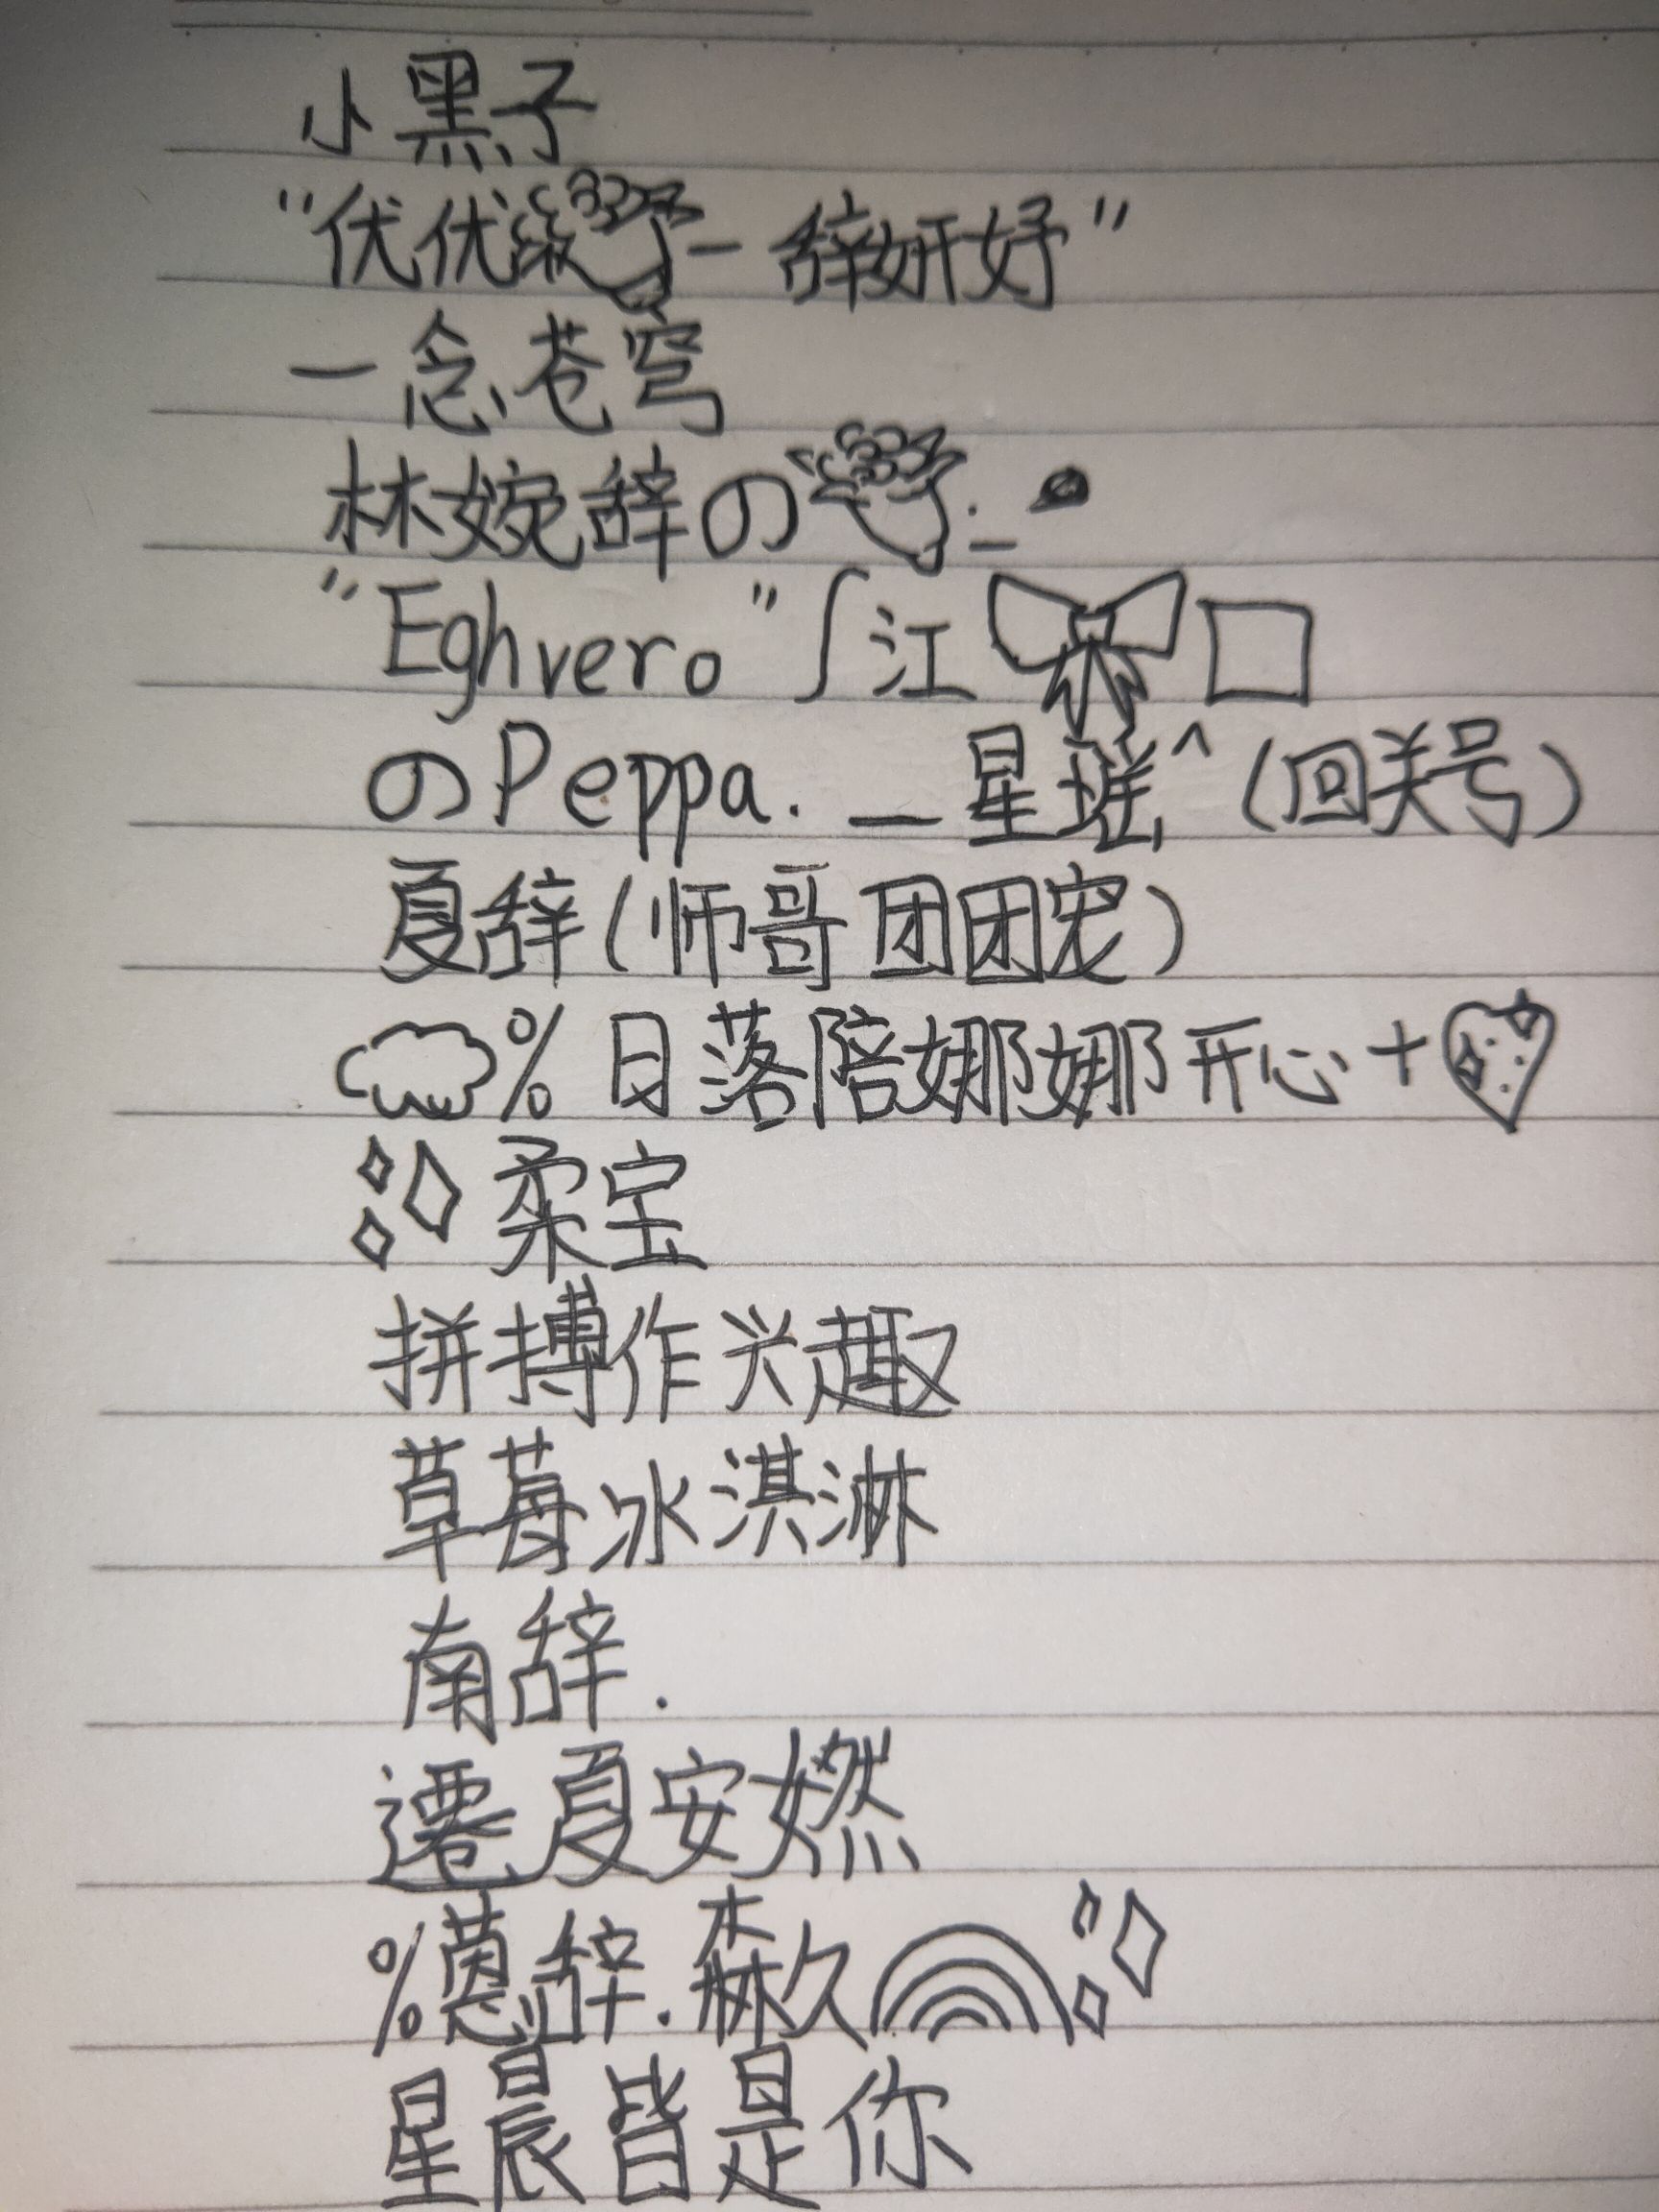 小黑子
“优优 - 辞妍妤”
一念苍穹
林婉辞の._
“Eghvero”∫江
のPeppa._星 ^(回关号)
夏辞(师哥团团宠)
%日落陪娜娜开心+
柔宝
拼搏作兴趣
草莓冰淇淋
南辞.
遷夏安嬿
% 辞.森久
星晨皆是你